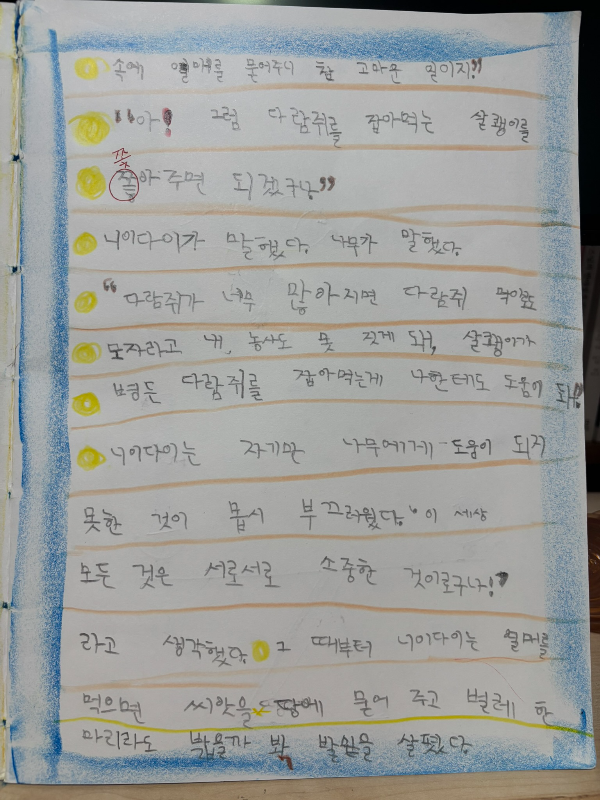 속에 열매를 묻어주니 참 고마운 일이지."
"아! 그럼 다람쥐를 잡아먹는 살쾡이를
쫓
쫓아주면 되겠구나"
니이다이가 말했다. 나무가 말했다.
"다람쥐가 너무 많아지면 다람쥐 먹이도
모자라고 내, 농사도 못 짓게 돼, 살쾡이가
병든 다람쥐를 잡아먹는게 나한테도 도움이 돼!"
니이다이는 자기만 나무에게 도움이 되지
못한 것이 몹시 부끄러웠다. '이 세상
모든 것은 서로서로 소중한 것이로구나!'
라고 생각했다. 그 때부터 니이다이는 열매를
먹으면 씨앗을 땅에 묻어 주고 벌레 한
마리라도 밟을까 봐 발밑을 살폈다.